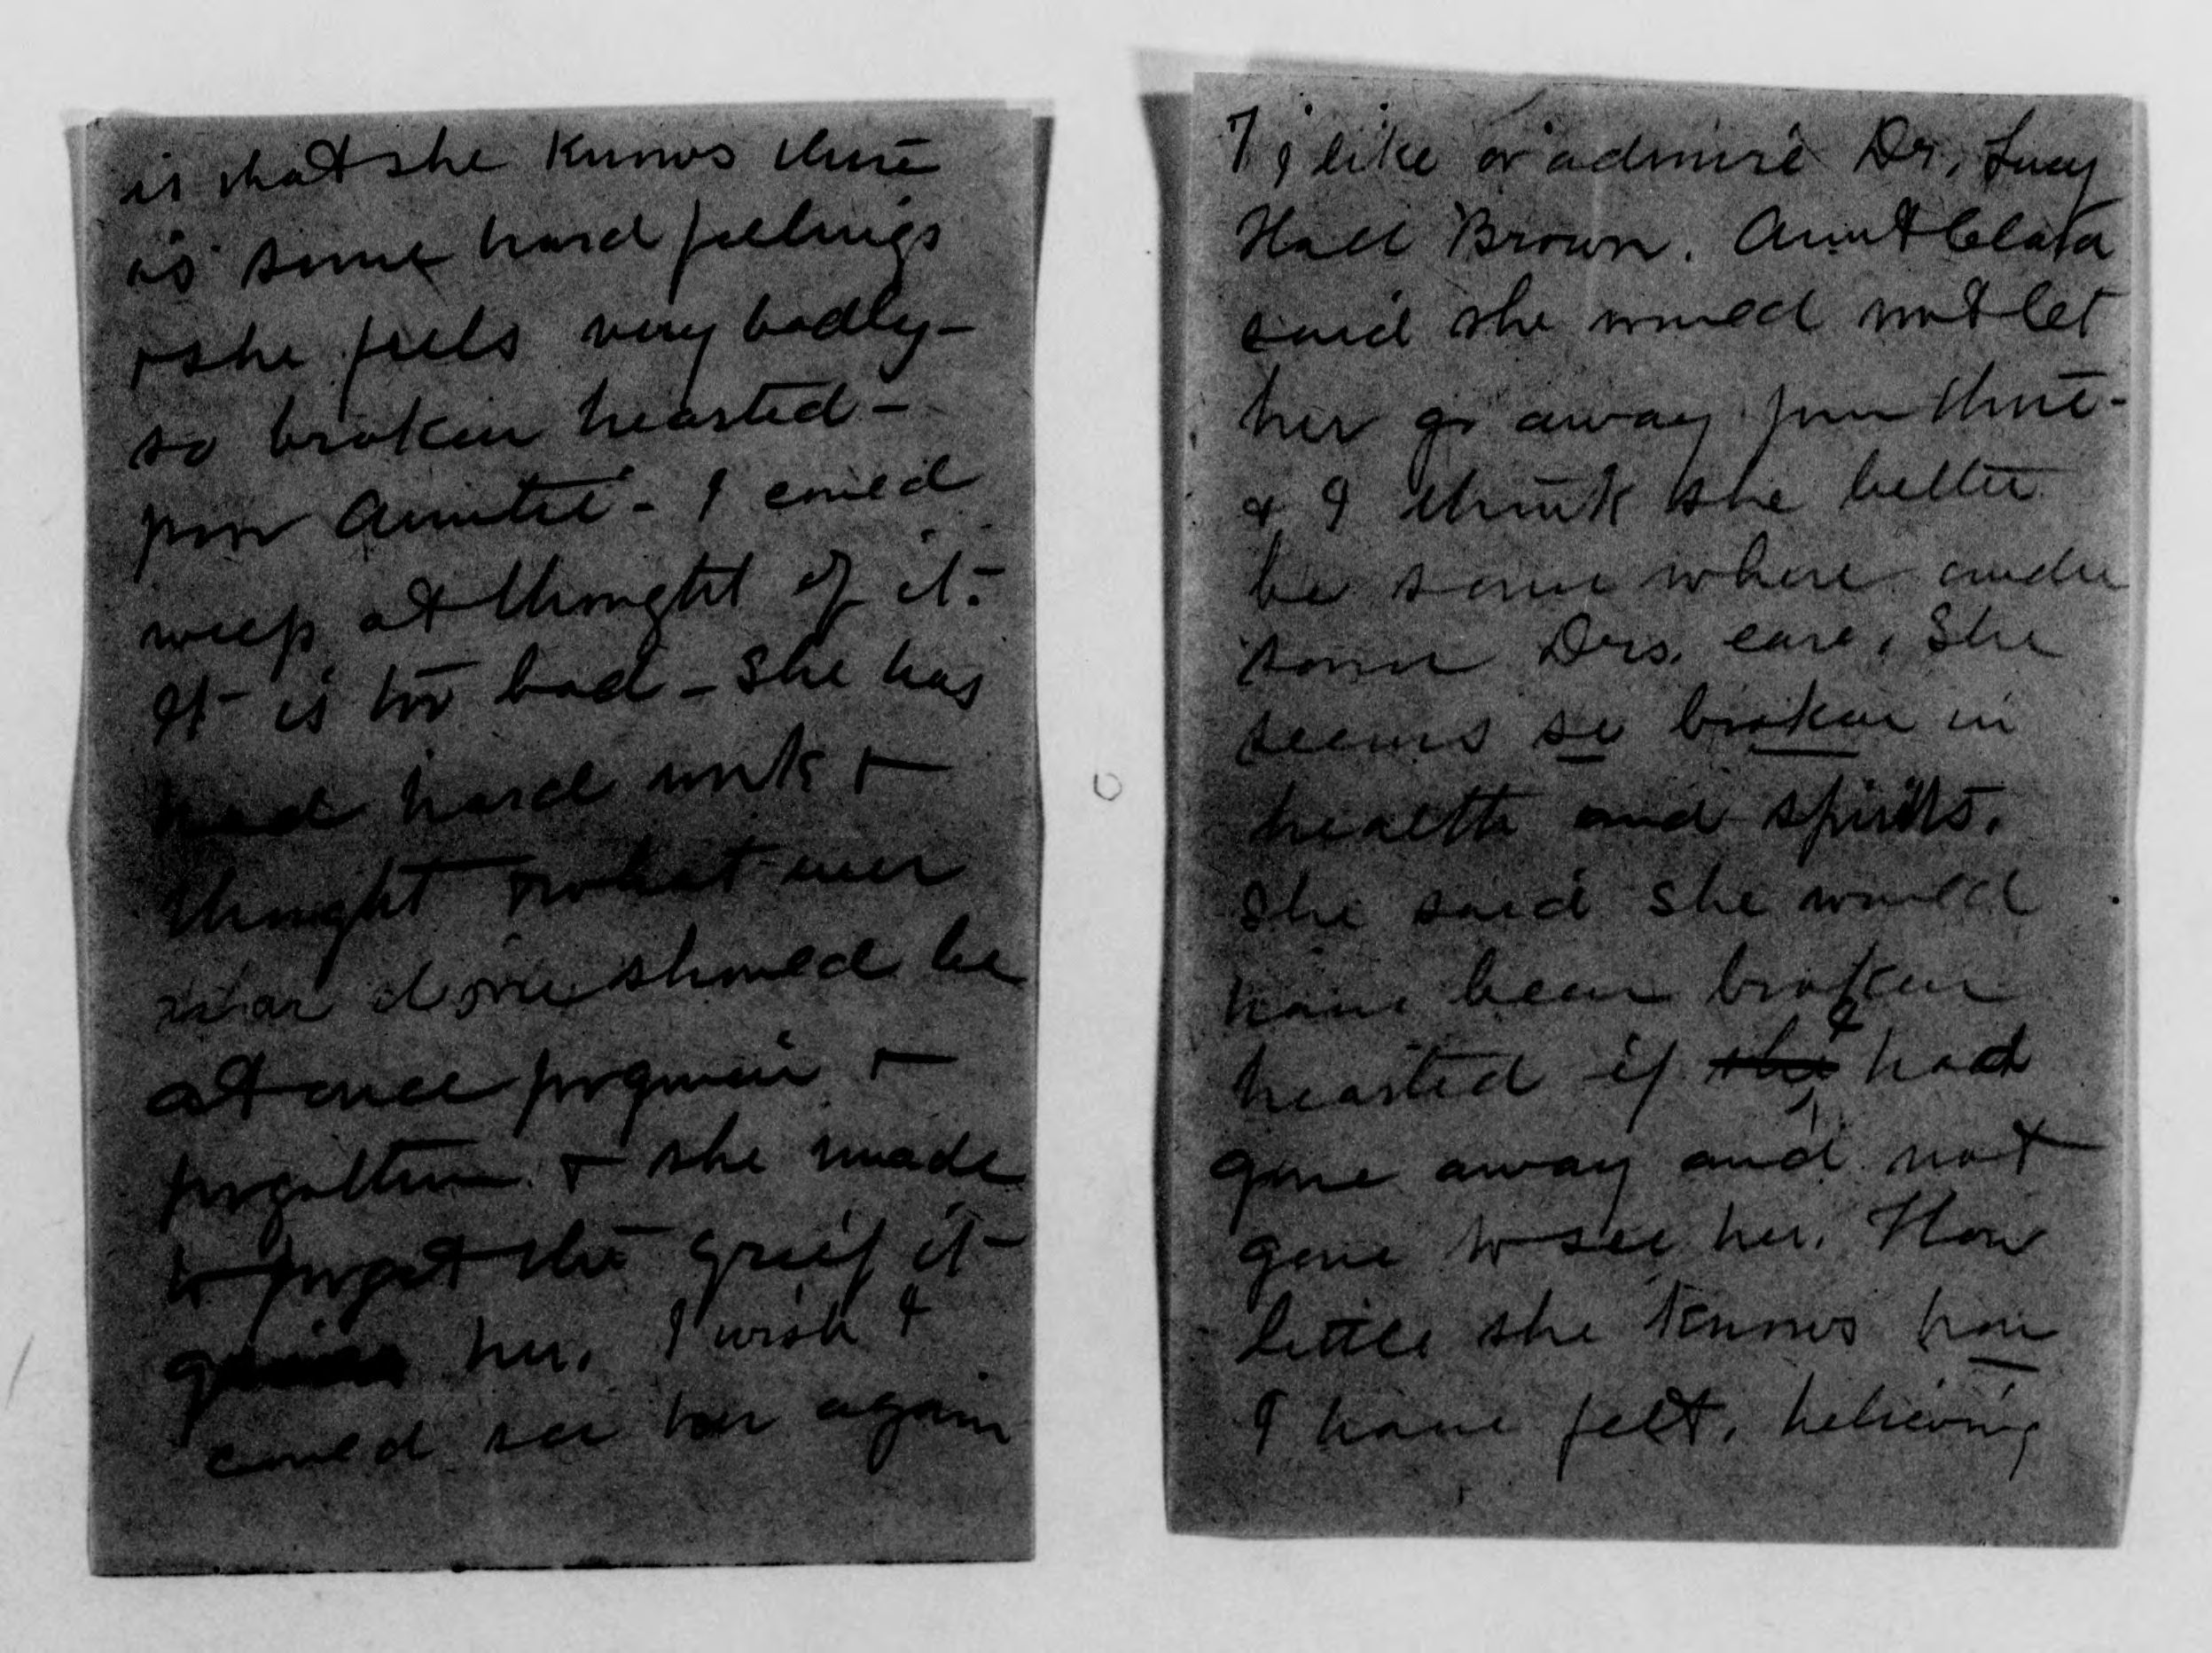 is that she knows there
is some hard feelings
& she feels very badly -
so broken hearted -
poor Auntie - I could
weep at thought of it. -
It is too bad - She has
had hard work &
thought what ever
was done should be
at once forgiven &
forgotten & she made
to forget the grief it
her. I wish I
could see her again
7 I like or admire Dr. Lucy
Hall Brown. Aunt Clara
said she would not let
her go away from there -
& I think she better
be some where under
some Drs. care. She
seems so broken in
health and spirits.
She said she would
have been broken
hearted if the I had
gone away and not
gone to see her. How
little she knows how
I have felt, believing